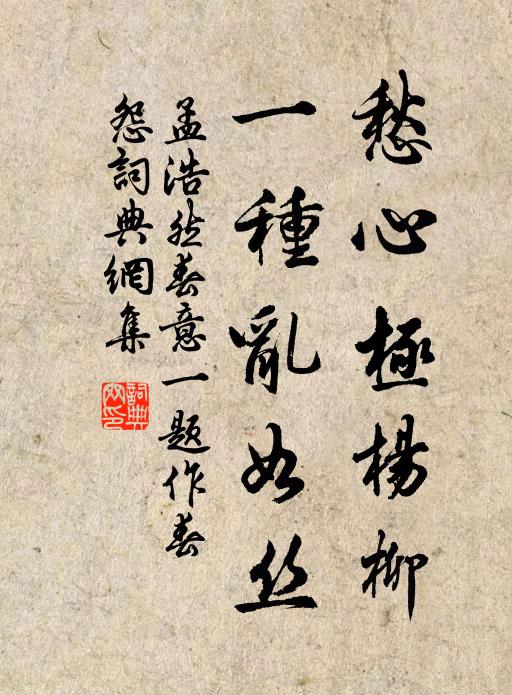 愁心極楊柳
一種亂如絲
孟浩然春意一題作春
怨詞典網集
詞典
网印